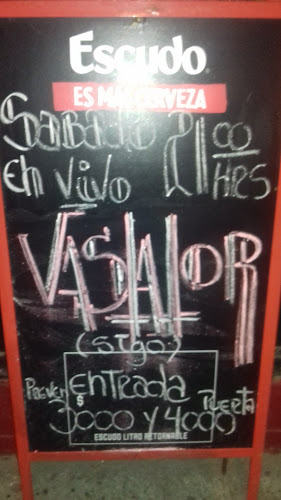 Escudo
ES MÁS CERVEZA
Sabado 21:00
En vivo HRS
VASTATOR
(stgo)
entrada
Preven $3000 y 4000 Puerta
ESCUDO LITRO RETORNABLE